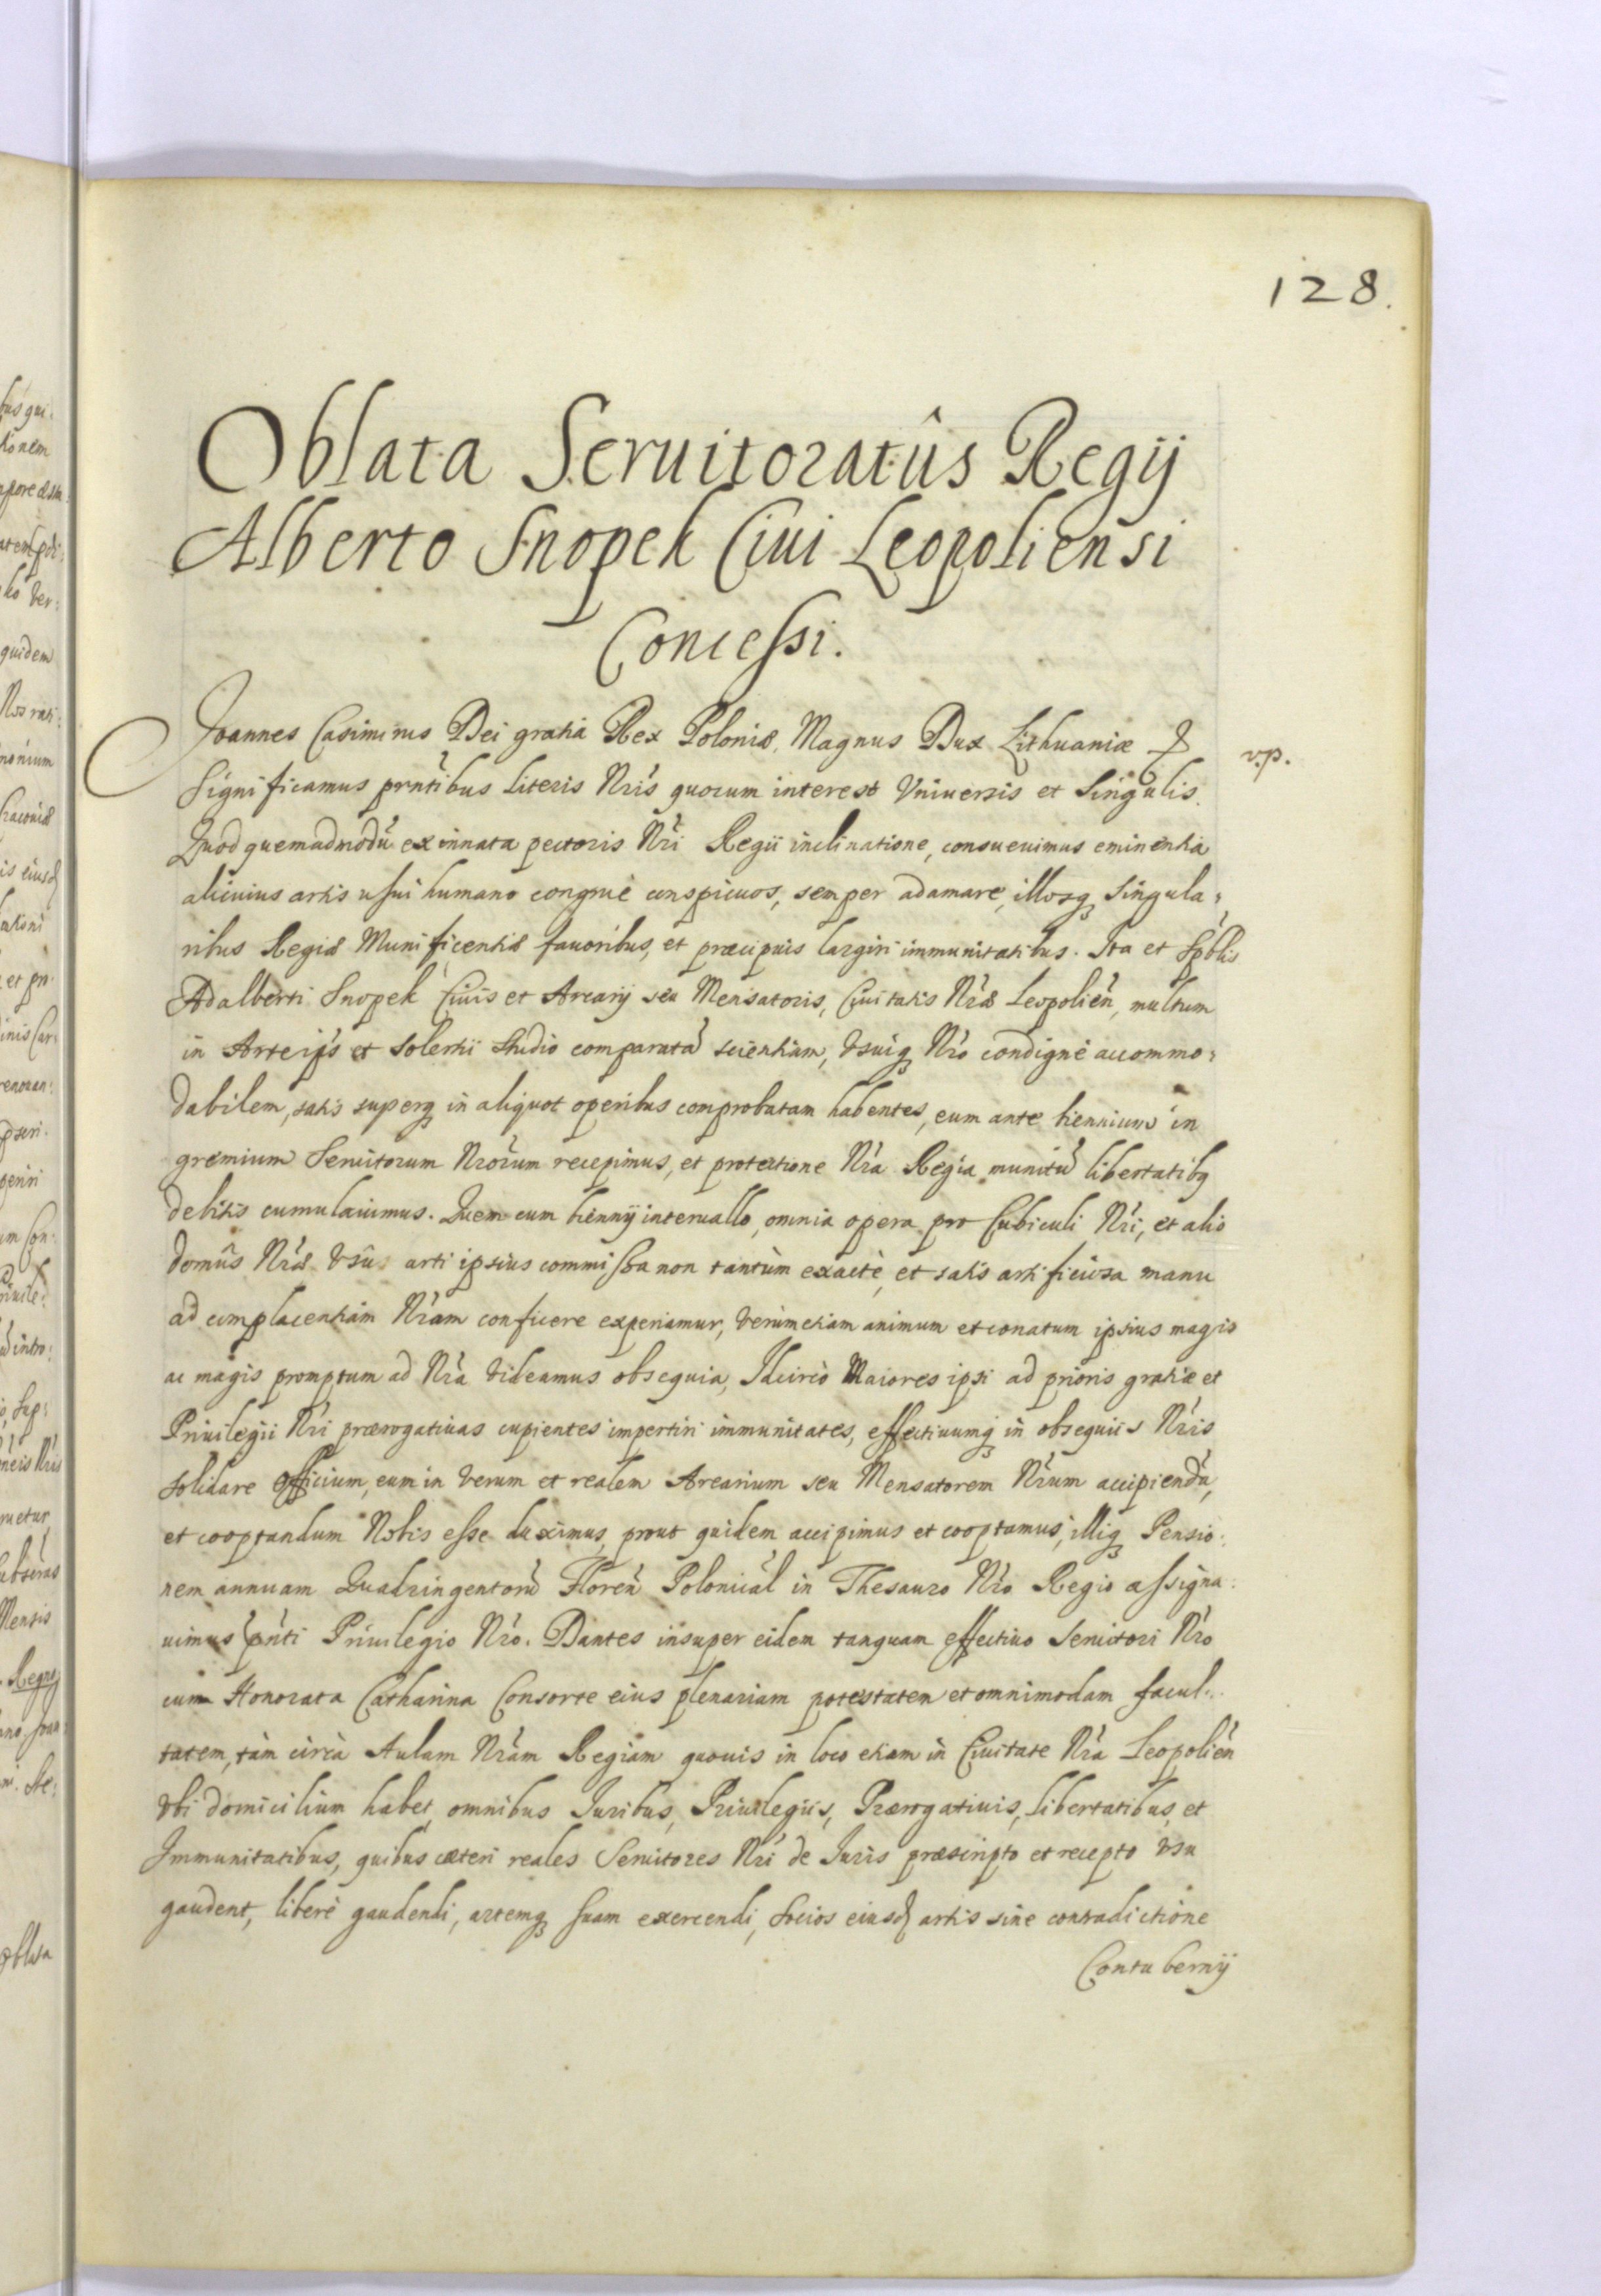 128.
Oblata Seruitoratûs Regij
Alberto Snopek Ciui Leopoliensi
Concessi.
Joannes Casimirus Dei gratia Rex Poloniæ, Magnus Dux Lithuaniæ &
v.p.
Significamus prntibus Literis Nris quorum interest Vniuersis et Singulis.
Quod quemadmodũ ex innata pectoris Nri Regii inclinatione, consueuimus eminentia
alicuius artis usui humano congruè conspicuos, semper adamare, illosq Singula:
ribus Regiæ Munificentiæ fauoribus, et præcipuis largiri immunitatibus. Ita et Spblis
Adalberti Snopek Ciuis et Arcarij seu Mensatoris, Ciuitatis Nræ Leopolień, multum
in Arte ips et solertii studio comparatã scientiam, vsuiq Nro condignè accommo:
dabilem, satis superq in aliquot operibus comprobatam habentes, eum ante biennium in
gremium Seruitorum Nrorum recepimus, et protectione Nra Regia munitũ libertatibq
debitis cumulauimus. Quem cum biennij interuallo, omnia opera pro Cubiculi Nri, et alio
domûs Nræ vsûs arti ipsius commissa non tantùm exactè, et satis artificiosa manu
ad complacentiam Nram conficere experiamur, verùm etiam animum et conatum ipsius magis
ac magis promptum ad Nra videamus obsequia, Idcircò Maiores ipsi ad prioris gratiæ et
Priuilegii Nri prærogatiuas cupientes impertiri immunitates, effectiuumq in obsequiis Nris
solidare officium, eum in verum et realem Arcarium seu Mensatorem Nrum accipiendũ,
et cooptandum Nobis esse duximus, prout quidem accipimus et cooptamus, illiq Pensio:
nem annuam Quadringentorũ Floreń Polonical in Thesauro Nro Regio assigna:
uimus pnti Priuilegio Nro. Dantes insuper eidem tanquam effectiuo Seruitori Nro
cum Honorata Catharina Consorte eius plenariam potestatem et omnimodam facul:
tatem, tàm circà Aulam Nram Regiam quouis in loco etiam in Ciuitate Nra Leopolień
vbi domicilium habet, omnibus Juribus, Priuilegiis, Prærogatiuis, libertatibus, et
Immunitatibus, quibus cæteri reales Seruitores Nri de Juris præscripto et recepto vsu
gaudent, liberè gaudendi, artemq suam exercendi, Socios eiusd artis sine contradictione
Contubernij